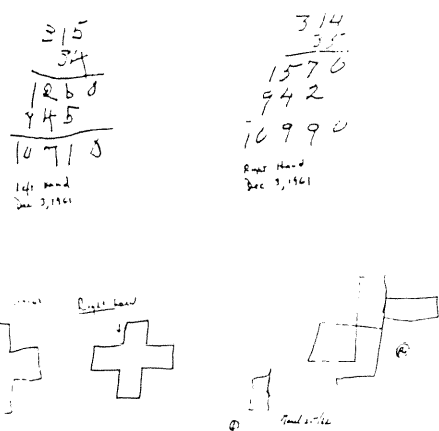 315
34
1260
945
10710
Left Hand
Dec 3, 1961
314
35
1570
942
10990
Right Hand
Dec 3, 1961
Right hand